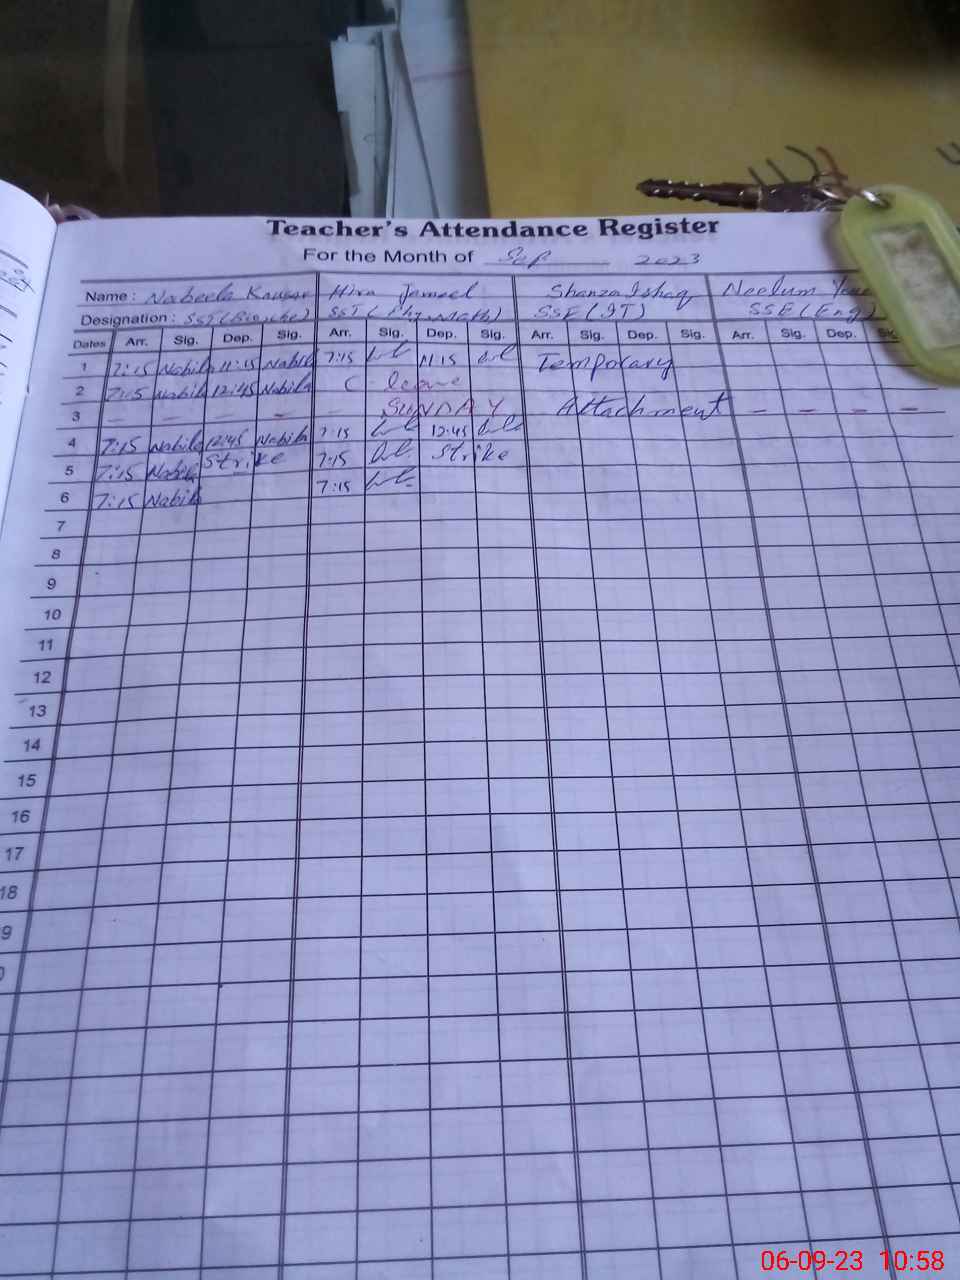 Teacher's Attendance Register
For the Month of Sep 2023
Name: Nabeela Kausar Hira Jameel Shanza Ishaq Neelum
Designation: SST( SST( Phy-Math) SSE(IT) SSE(Eng)
Dates Arr. Sig. Dep. Sig. Arr. Sig. Dep. Sig. Arr. Sig. Dep. Sig. Arr. Sig. Dep. Sig
1 7:15 Nabila 11:15 Nabila 7:15 11:15 Temporary
2 7:15 Nabila 12:45 Nabila C- leave
3 - - - - - SUNDAY Attachment - - - -
4 7:15 Nabila 12:45 Nabila 7:15 12:45
5 7:15 Nabila Strike 7:15 Strike
6 7:15 Nabila 7:15
7
8
9
10
11
12
13
14
15
16
17
18
9
06-09-23 10:58